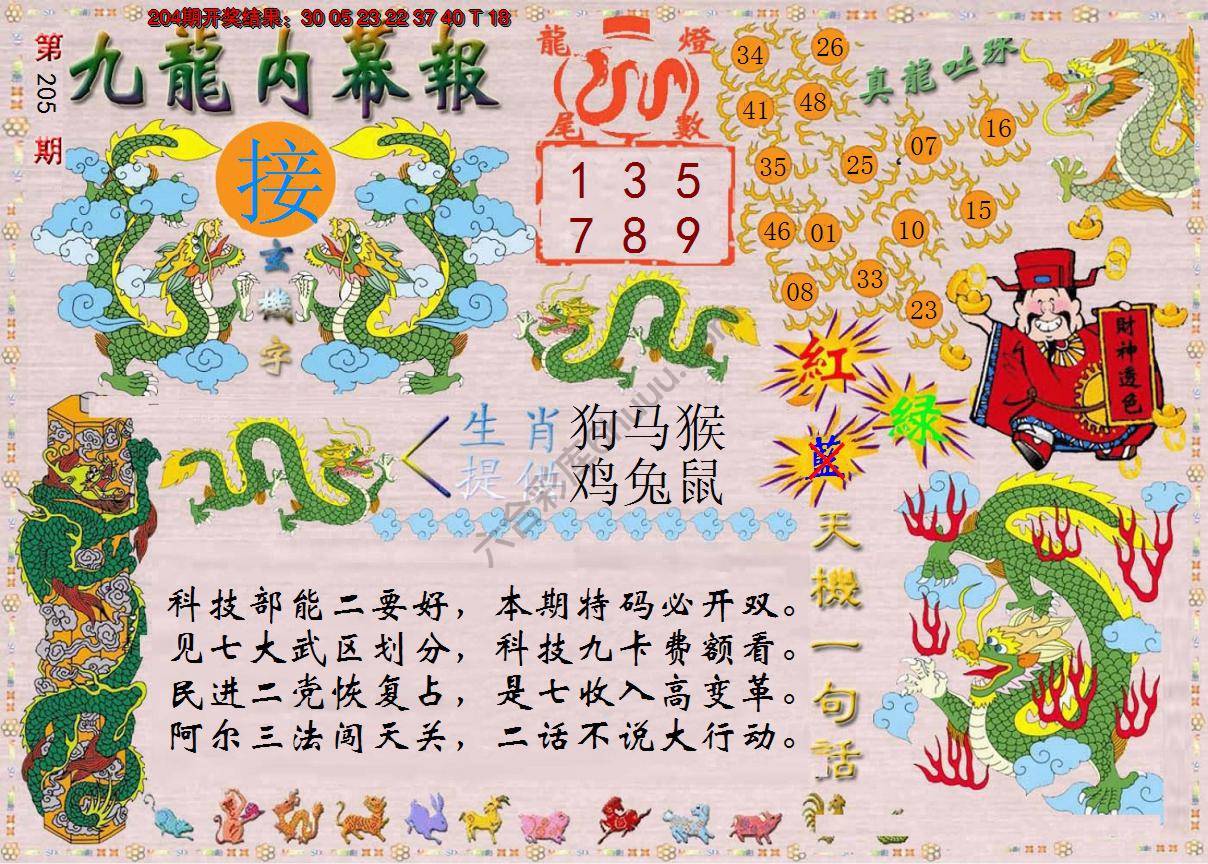 204期开奖结果：30 05 23 22 37 40 T 18
第
205
期
九龍内幕報
接
玄
機
字
龍 燈
尾 數
1 3 5
7 8 9
真龍吐珠
34 26
41 48
07 16
35 25
46 01 10 15
08 33 23
紅
綠
藍
財神透色
生肖 狗马猴
提供 鸡兔鼠
科技部能二要好，本期特码必开双。
见七大武区划分，科技九卡费额看。
民进二党恢复占，是七收入高变革。
阿尔三法闯天关，二话不说大行动。
天機一句話